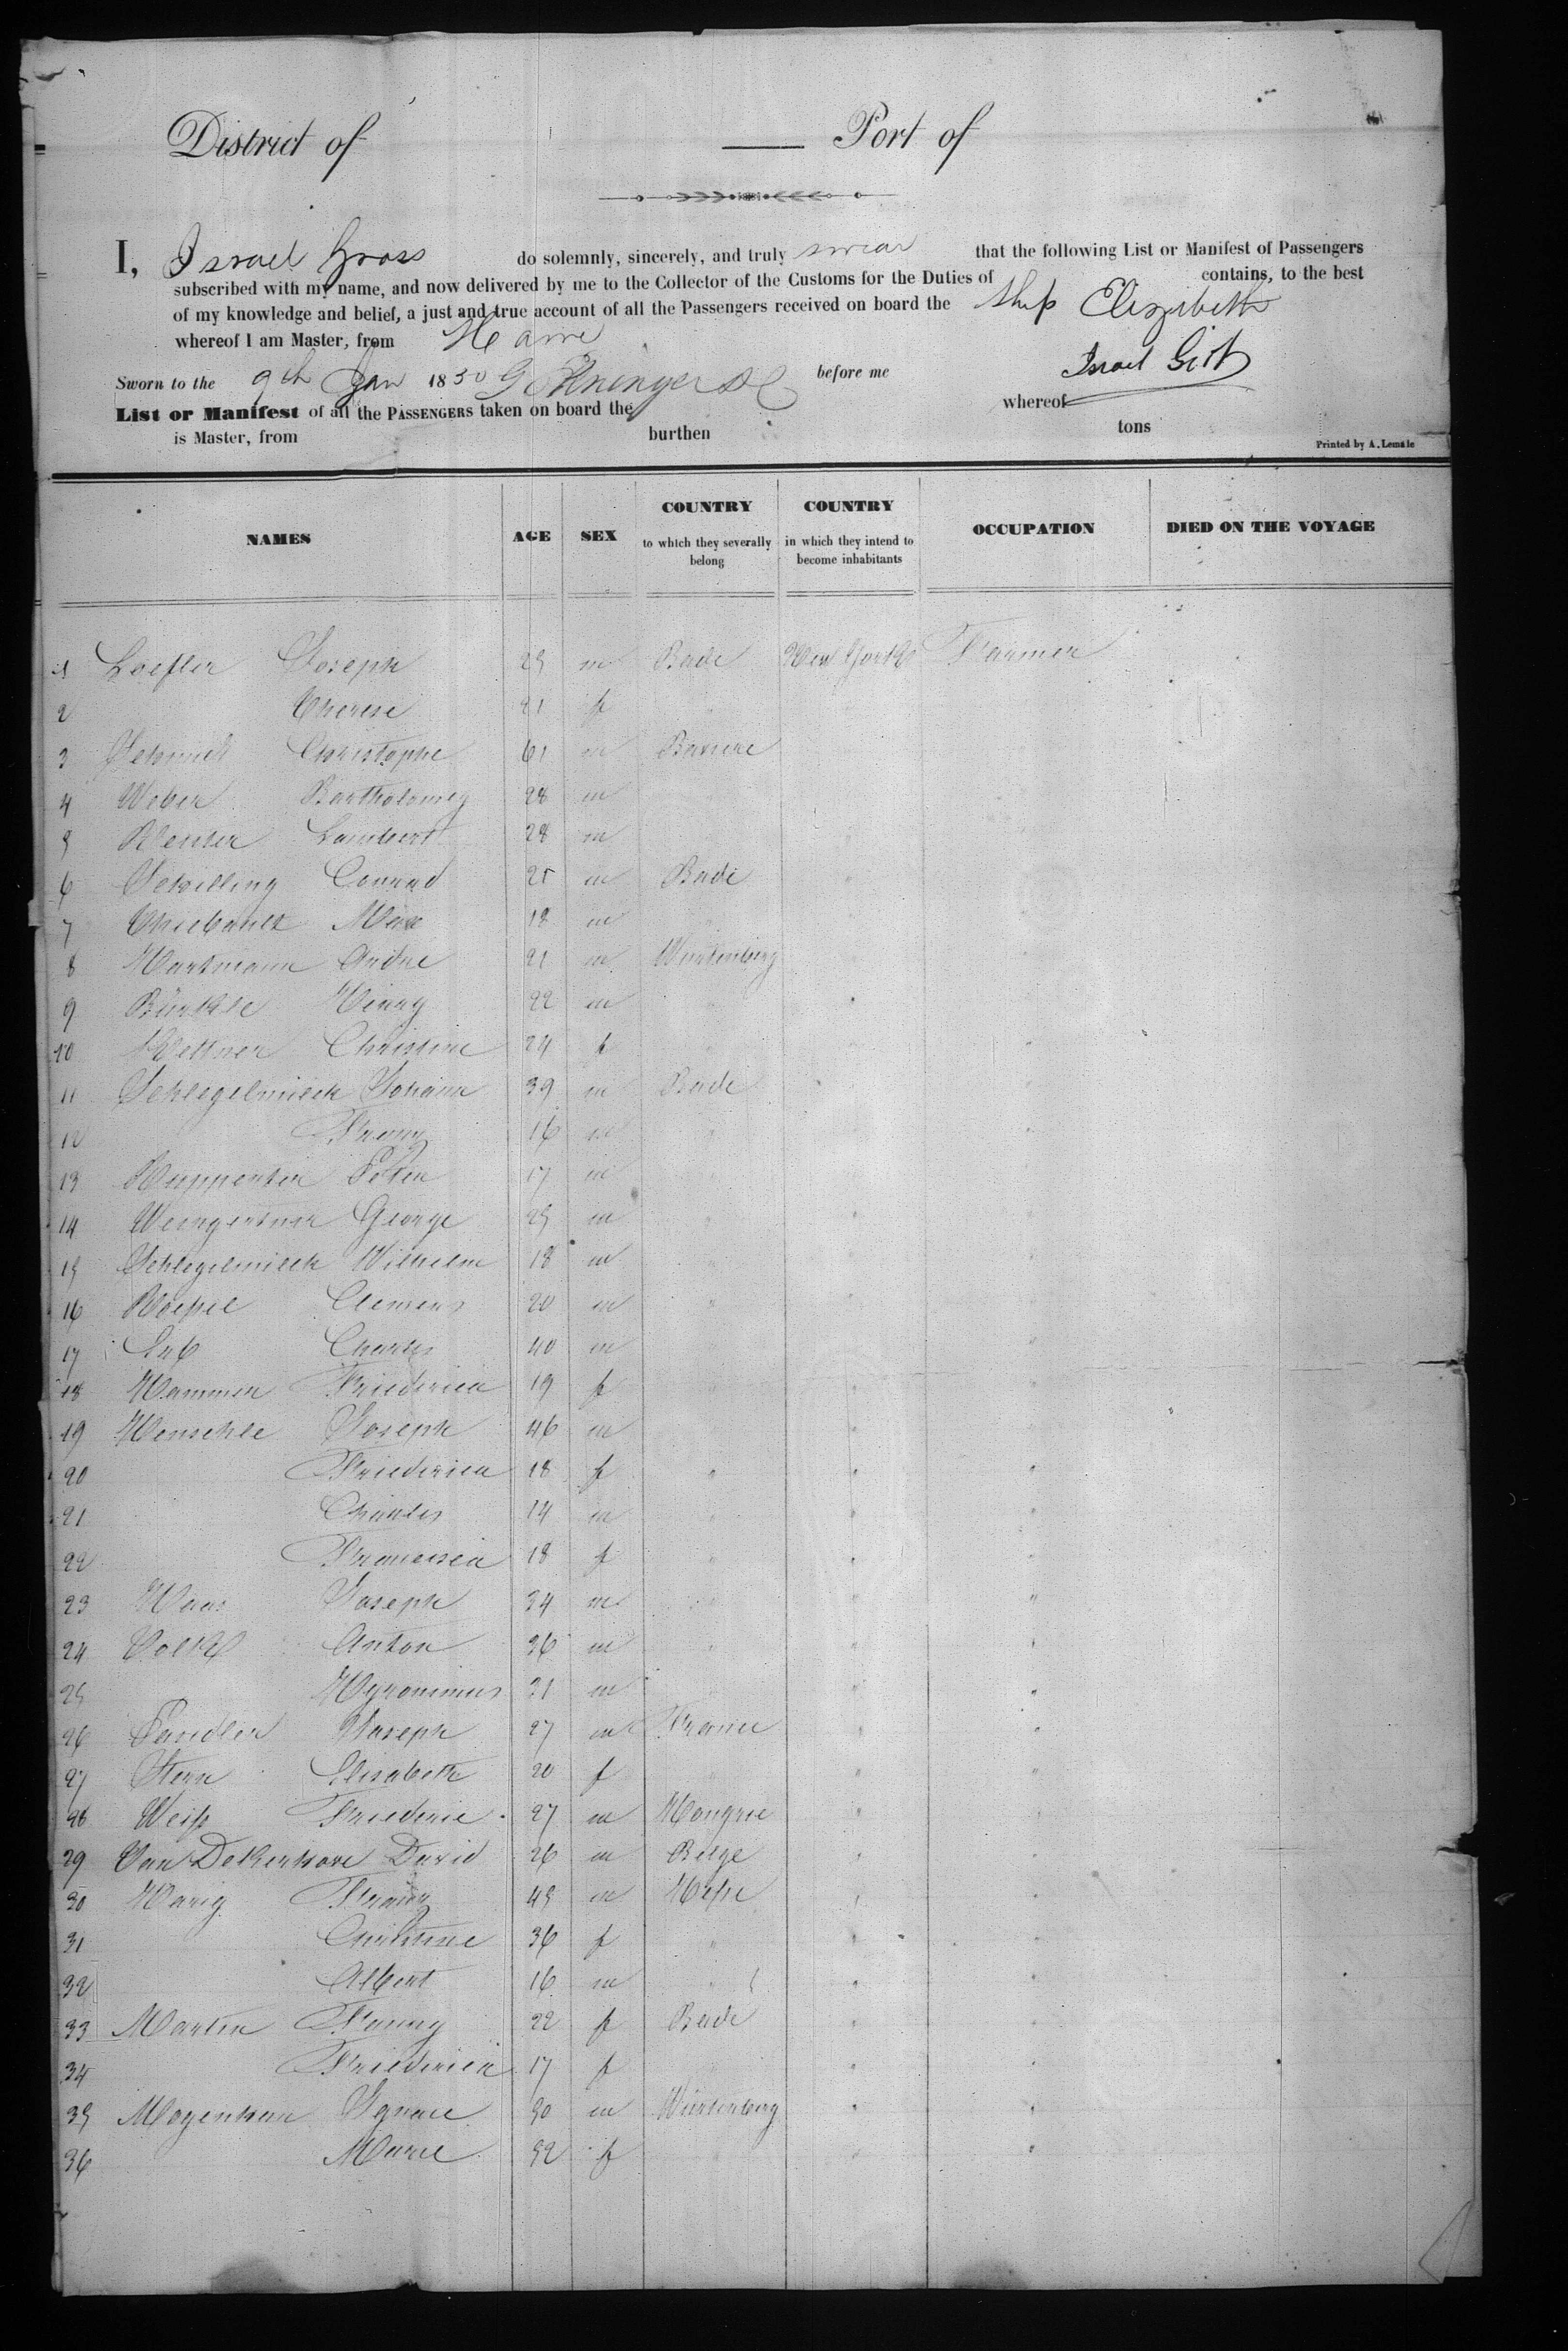 District of Port of
I, Israel Gross do solemnly, sincerely, and truly swear that the following List or Manifest of Passengers
subscribed with my name, and now delivered by me to the Collector of the Customs for the Duties of contains, to the best
of my knowledge and belief, a just and true account of all the Passengers received on board the Ship Elizabeth
whereof I am Master, from Havre
Sworn to the 9th Jan 1850 before me Israel
List or Manifest of all the PASSENGERS taken on board the whereof
is Master, from burthen tons
Printed by A. Lemale
NAMES AGE SEX COUNTRY to which they severally belong COUNTRY in which they intend to become inhabitants OCCUPATION DIED ON THE VOYAGE
1 Loefler Joseph 25 m Bade New York Farmer
2 Therese 21 f
3 Christophe 61 m Baviere
4 Weber Bartholomey 28 m
5 Lambert 28 m
6 Schilling Conrad 25 m Bade
7 Max 18 m
8 Hartmann Andre 21 m Wurtemberg
9 Bürkle Henry 22 m
10 Christine 24 f
11 Schlegelmilch Johann 39 m Bade
12 Franz 16 m
13 Peter 17 m
14 Weingertner George 25 m
15 Schlegelmilch Wilhelm 18 m
16 Clemens 20 m
17 Charles 40 m
18 Hammer Friederica 19 f
19 Henschle Joseph 46 m
20 Friederica 18 f "
21 Charles 14 m
22 Francisca 18 f
23 Haas Joseph 34 m
24 Volk Anton 36 m
25 Hyronimus 31 m
26 Joseph 27 m France
27 Stern Elisabeth 20 f
28 Weiß Friederic 27 m Hongrie
29 Van Dekerkove David 26 m Belge
30 Harig Franz 45 m Heße
31 Christine 36 f "
32 Albert 16 m "
33 Martin Fanny 22 f Bade
34 Friederica 17 f
35 Ignace 30 m Würtemberg
36 Marie 32 f